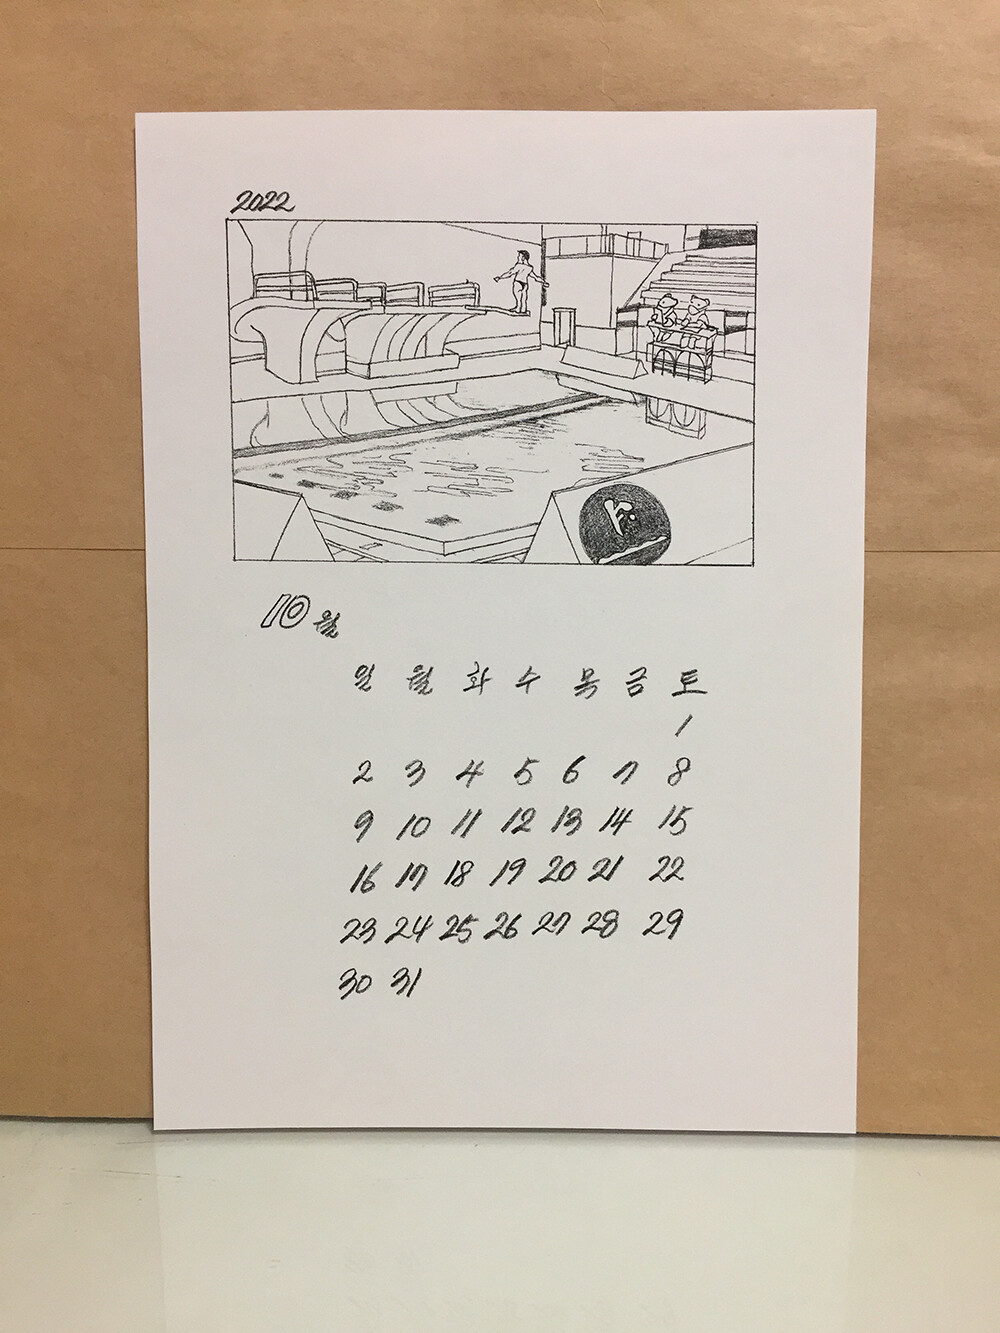 2022
10월
일 월 화 수 목 금 토
1
2 3 4 5 6 7 8
9 10 11 12 13 14 15
16 17 18 19 20 21 22
23 24 25 26 27 28 29
30 31